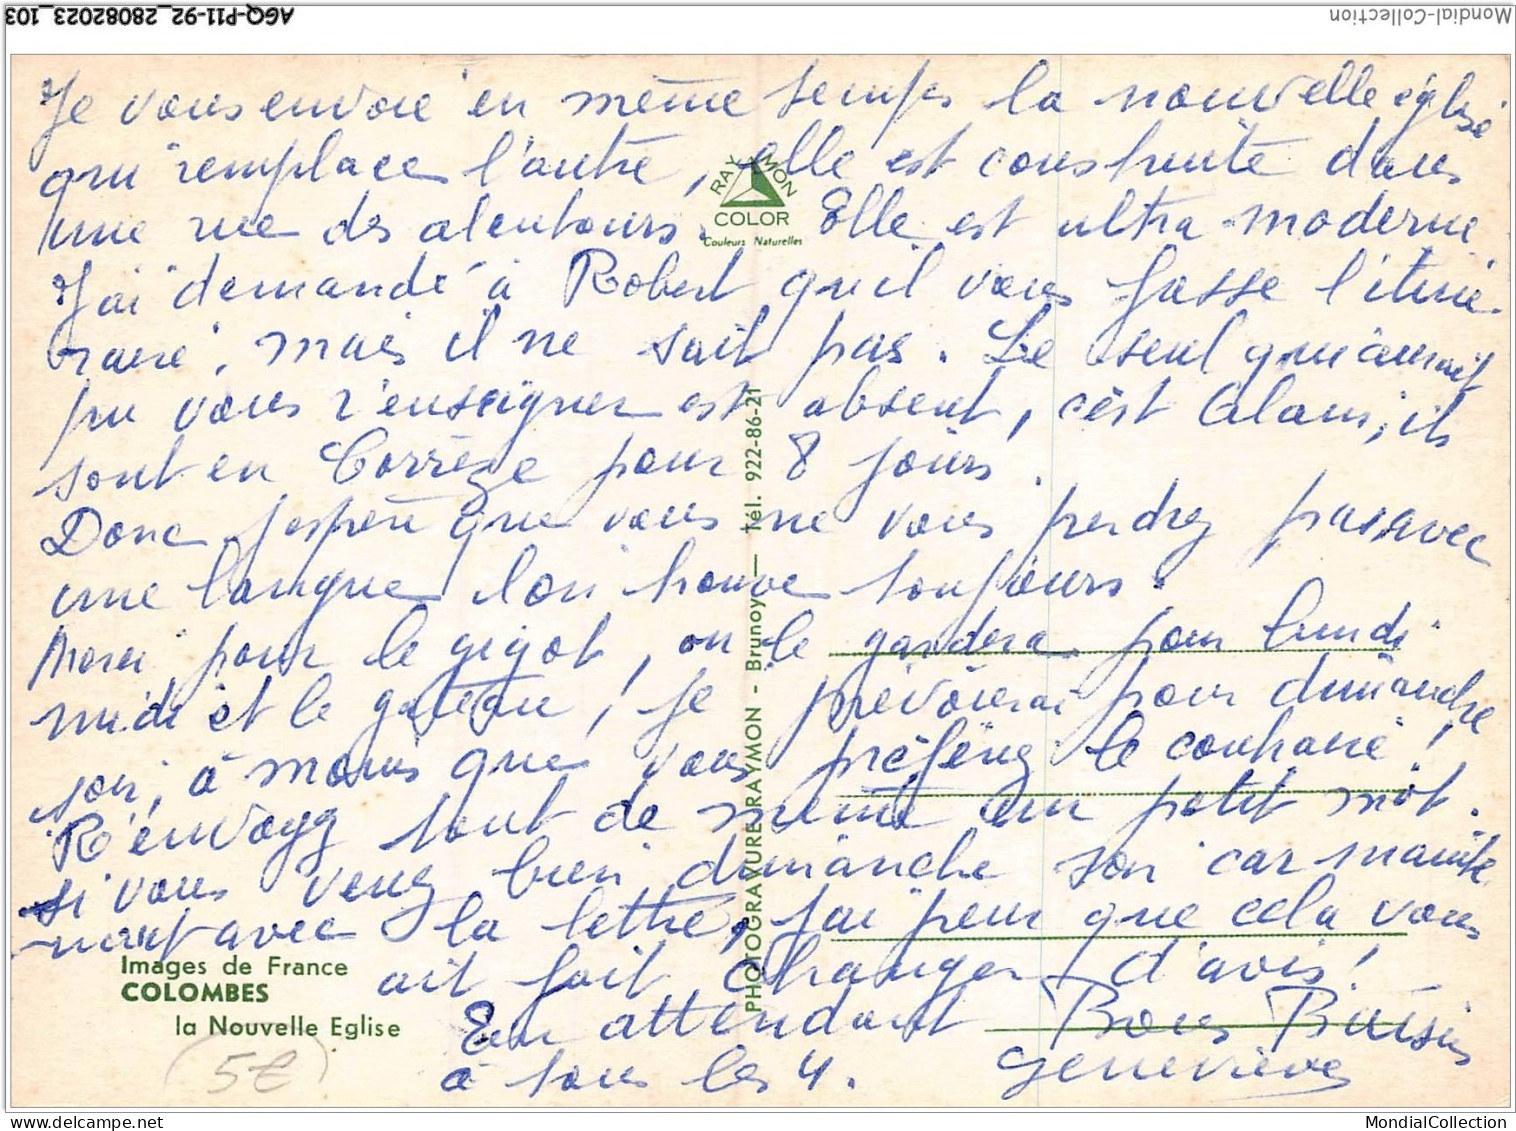 AGQ-P11-92_28082023_103
Mondial-Collection
Je vous envoie en même temps la nouvelle église
qui remplace l'autre, elle est construite dans
une rue des alentours. Elle est ultra-moderne
J'ai demandé à Robert qu'il vous fasse l'itiné-
raire, mais il ne sait pas. Le seul qui aurait
pu vous renseigner est absent, c'est Alain, ils
sont en Corrèze pour 8 jours.
Donc j'espère que vous ne vous perdrez pas avec
une langue l'on trouve toujours.
Merci pour le gigot, on le gardera pour lundi
midi et le gâteau, je prévoierai pour dimanche
soir, à moins que vous préfériez le contraire !
R'envoyez tout de même un petit mot.
si vous venez bien dimanche soir car mainte
nant avec la lettre, j'ai peur que cela vous
ait fait changer d'avis !
En attendant Bons Baisers
à tous les 4. Geneviève
RAYMON
COLOR
Couleurs Naturelles
PHOTOGRAVURE RAYMON - Brunoy — Tél. 922-86-21
Images de France
COLOMBES
la Nouvelle Eglise
(5€)
MondialCollection
MondialCollection